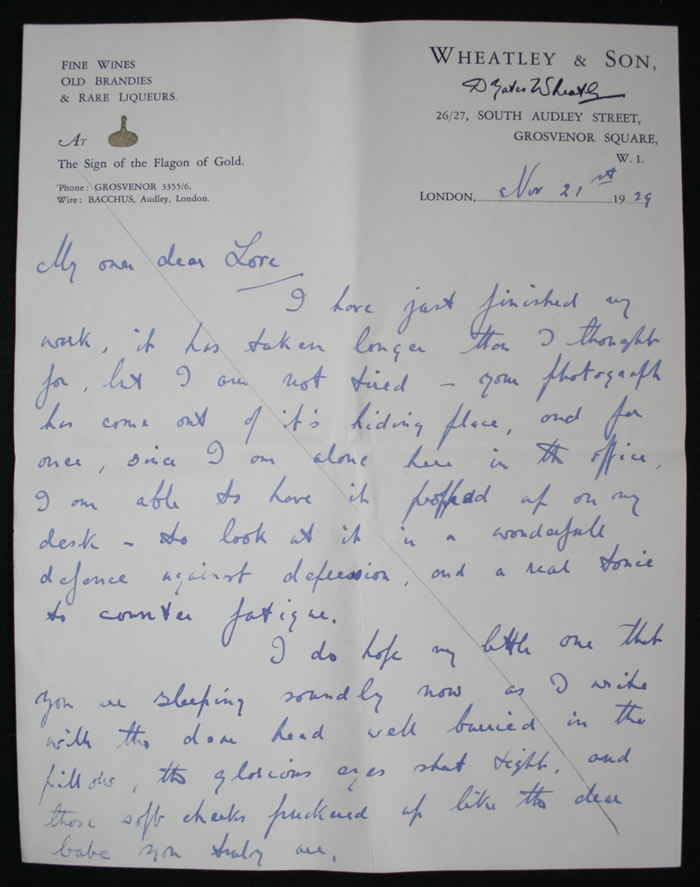 FINE WINES
OLD BRANDIES
& RARE LIQUEURS.
AT
The Sign of the Flagon of Gold.
'Phone: GROSVENOR 3355/6.
Wire: BACCHUS, Audley, London.
WHEATLEY & SON,
D Yates Wheatley
26/27, SOUTH AUDLEY STREET,
GROSVENOR SQUARE,
W. 1.
LONDON, Nov 21st 1929
My own dear Love
I have just finished my
work, it has taken longer than I thought
for, but I am not tired – your photograph
has come out of it's hiding place, and for
once, since I am alone here in the office,
I am able to have it propped up on my
desk – to look at it is a wonderfull
defence against depression, and a real tonic
to counter fatigue.
I do hope my little one that
you are sleeping soundly now as I write
with the dear head well burried in the
pillows, the glorious eyes shut tight, and
those soft cheeks puckered up like the dear
babe you truly are.